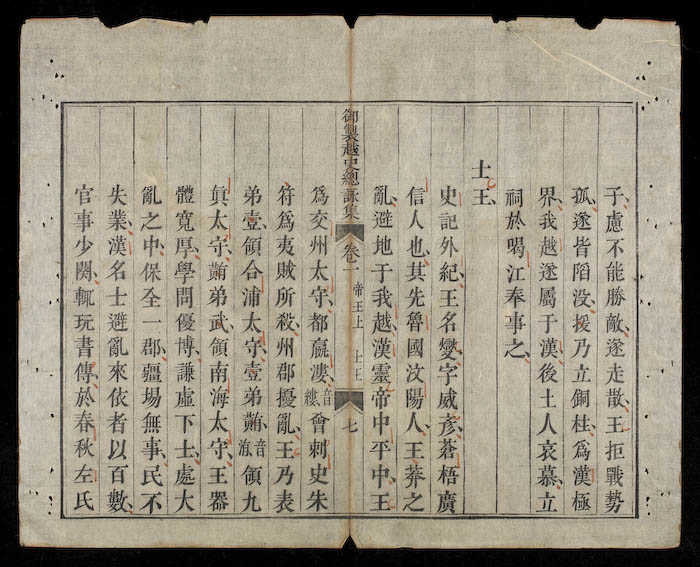 子慮不能勝敵、遂走散、王拒戰勢
孤、遂皆陷没、援乃立銅柱、為漢極
界、我越遂屬于漢、後土人哀慕、立
祠於喝江奉事之、
士王、
史記外紀、王名燮、字威彥、蒼梧廣
信人也、其先魯國汶陽人、王莽之
亂、避地于我越、漢靈帝中平中、王
御製越史總詠集 卷一 帝王上 士王 七
為交州太守、都嬴漊、音縷會刺史朱
符為夷賊所殺、州郡擾亂、王乃表
弟壹領合浦太守、壹弟䵋音洧領九
真太守、䵋弟武領南海太守、王器
體寬厚、學問優博、謙虛下士、處大
亂之中、保全一郡、疆場無事、民不
失業、漢名士避亂來依者以百數、
官事少闋、輒玩書傳、於春秋左氏